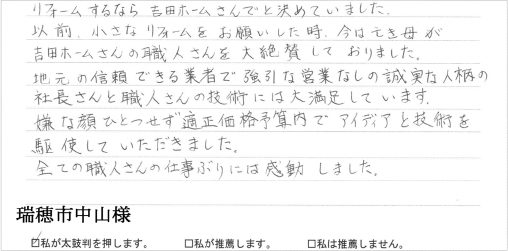 リフォームするなら吉田ホームさんでと決めていました。
以前、小さなリフォームをお願いした時、今は亡き母が
吉田ホームさんの職人さんを大絶賛しておりました。
地元の信頼できる業者で強引な営業なしの誠実な人柄の
社長さんと職人さんの技術には大満足しています。
嫌な顔ひとつせず適正価格予算内でアイディアと技術を
駆使していただきました。
全ての職人さんの仕事ぶりには感動しました。
瑞穂市中山様
☑私が太鼓判を押します。 □私が推薦します。 □私は推薦しません。